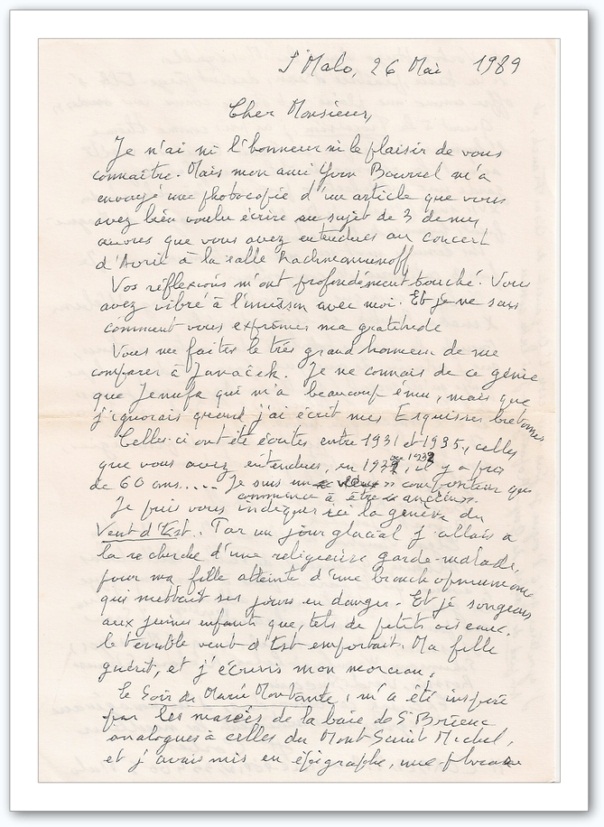 St Malo, 26 Mai 1989
Cher Monsieur,
Je n'ai ni l'honneur ni le plaisir de vous
connaître. Mais mon ami Yvon Bourrel m'a
envoyé une photocopie d'un article que vous
avez bien voulu écrire au sujet de 3 de mes
œuvres que vous avez entendues au concert
d'Avril à la salle Rachmaninoff
Vos réflexions m'ont profondément touché. Vous
avez vibré à l'unisson avec moi. Et je ne sais
comment vous exprimer ma gratitude
Vous me faites le très grand honneur de me
comparer à Janacek. Je ne connais de ce génie
que Jenufa qui m'a beaucoup ému, mais que
j'ignorais quand j'ai écrit mes Esquisses bretonnes
Celles-ci ont été écrites entre 1931 et 1935, celles
que vous avez entendues, en 1931, 1932, il y a près
de 60 ans.... Je suis un compositeur qui
commence à être ancien.
Je puis vous indiquer ici la genèse du
Vent d'Est. Par un jour glacial j'allais à
la recherche d'une religieuse garde-malade,
pour ma fille atteinte d'une bronchopneumonie
qui mettait ses jours en danger. Et je songeais
aux jeunes enfants que, tels de petits oiseaux,
le terrible vent d'Est emportait. Ma fille
guérit, et j'écrivis mon morceau.
Le Soir de Marée Montante, m'a été inspiré
par les marées de la baie de St Brieuc
analogues à celles du Mont Saint Michel,
et j'avais mis en épigraphe, une phrase